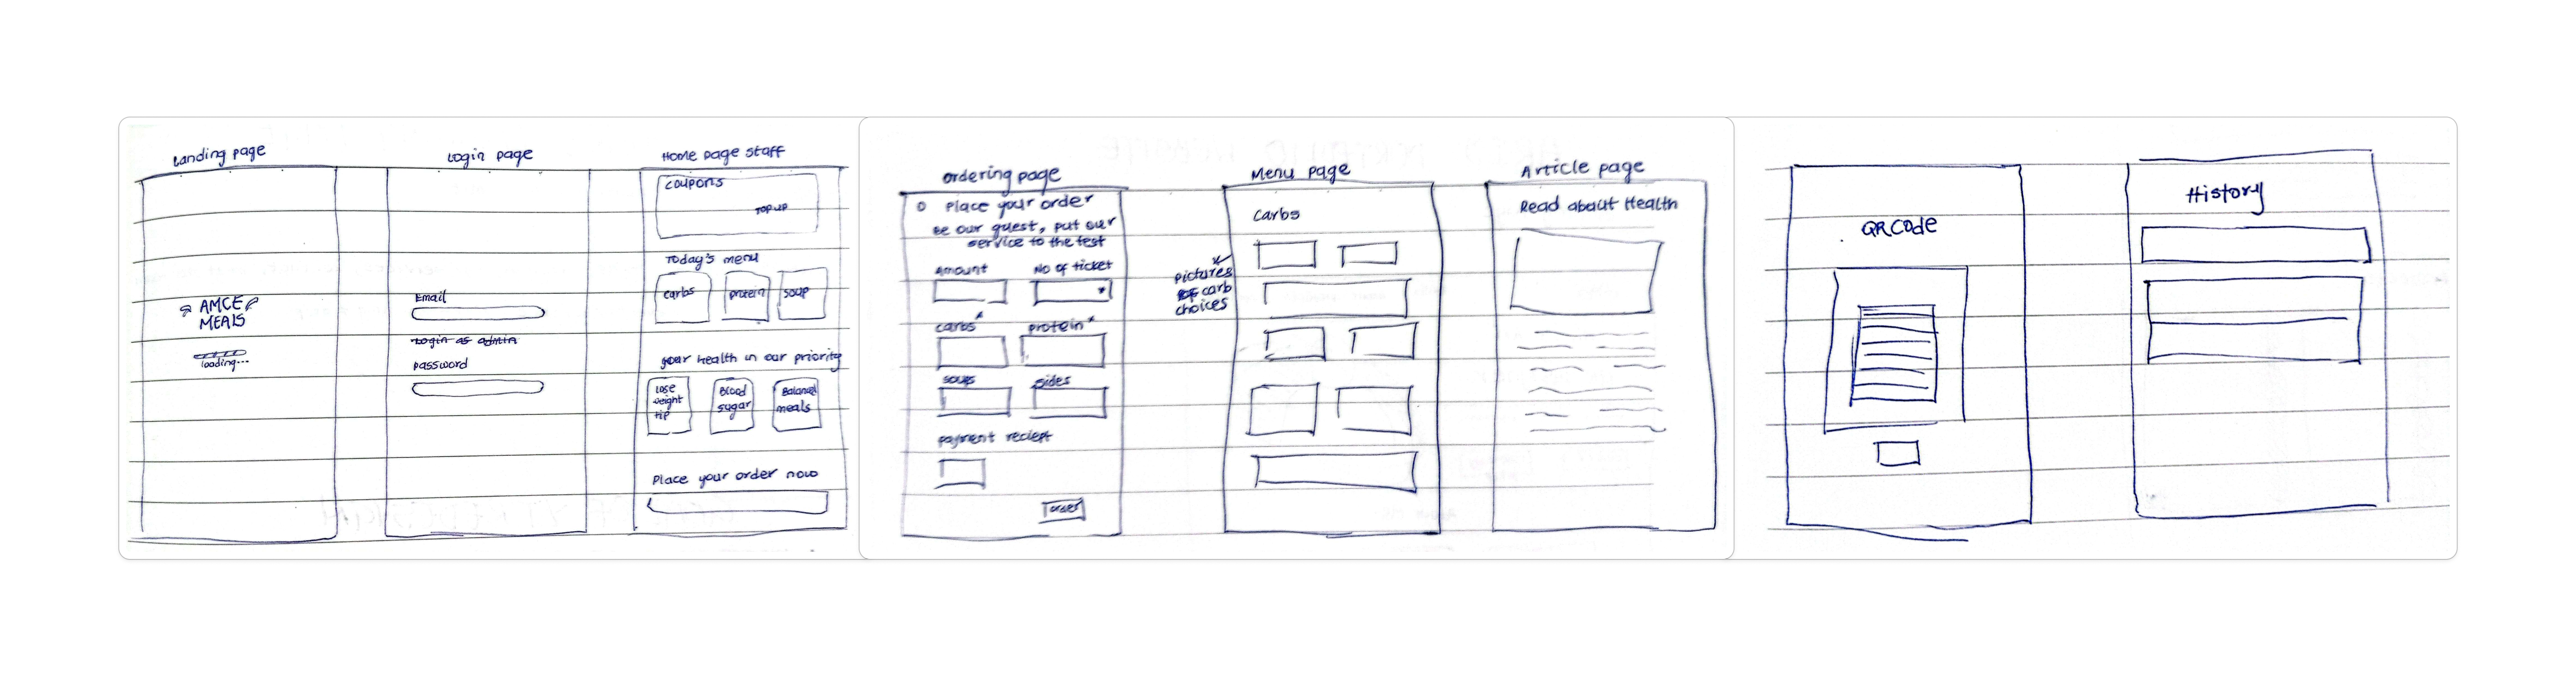 Landing page
AMCE
MEALS
loading...
Login page
Email
Login as admin
password
Home page staff
coupons
TOP UP
Today's menu
carbs
protein
soup
your health in our priority
Lose
weight
tip
Blood
sugar
Balanced
meals
Place your order now
ordering page
Place your order
Be our guest, put our
service to the test
Amount
No of ticket
carbs*
protein*
soups
sides
payment reciept
order
Menu page
Carbs
pictures
of carb
choices
Article page
Read about Health
QR Code
History